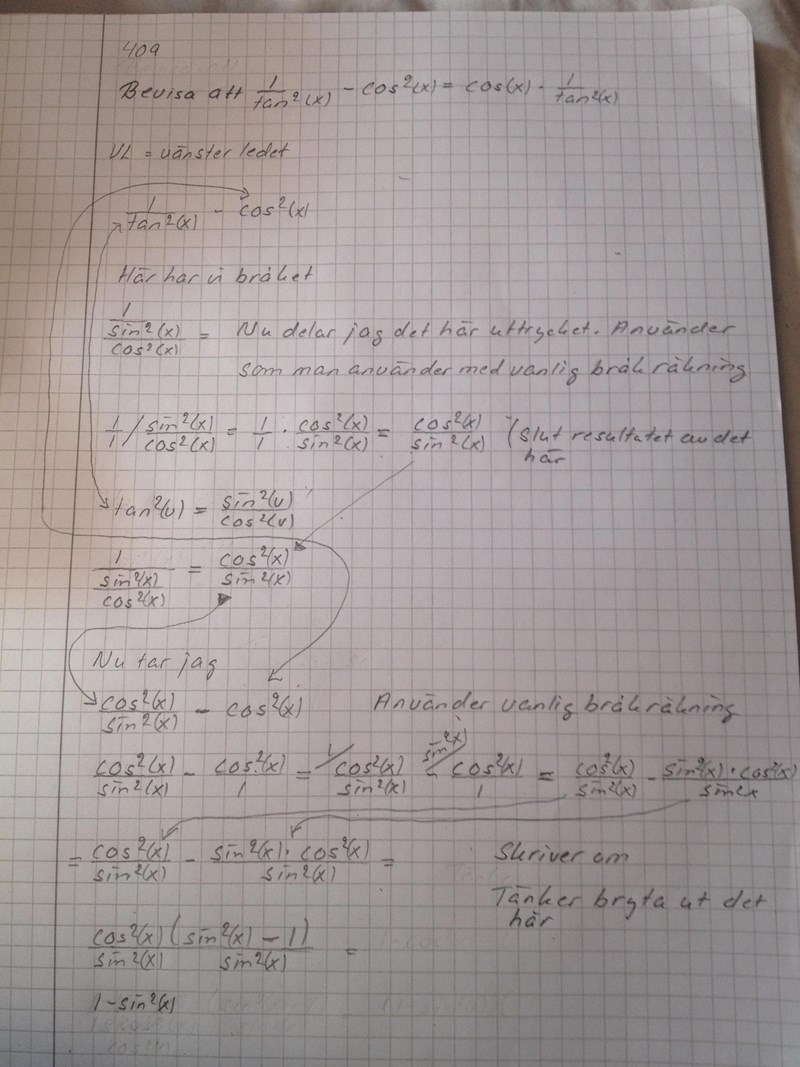 409
Bevisa att 1/tan²(x) - cos²(x) = cos(x) · 1/tan²(x)
VL = vänster ledet
1/tan²(x) - cos²(x)
Här har vi bråket
1/(sin²(x)/cos²(x)) = Nu delar jag det här uttrycket. Använder
som man använder med vanlig bråkräkning
1/1 / sin²(x)/cos²(x) = 1/1 · cos²(x)/sin²(x) = cos²(x)/sin²(x) (Slut resultatet av det
här
tan²(v) = sin²(v)/cos²(v)
1/(sin²(x)/cos²(x)) = cos²(x)/sin²(x)
Nu tar jag
cos²(x)/sin²(x) - cos²(x) Använder vanlig bråkräkning
cos²(x)/sin²(x) - cos²(x)/1 = 1/ cos²(x)/sin²(x) - sin²x)/ cos²(x)/1 = cos²(x)/sin²(x) - sin²(x)·cos²(x)/sin2x
= cos²(x)/sin²(x) - sin²(x)·cos²(x)/sin²(x) = Skriver om
Tänker bryta ut det
här
cos²(x)/sin²(x) (sin²(x) - 1)/sin²(x) =
1-sin²(x)